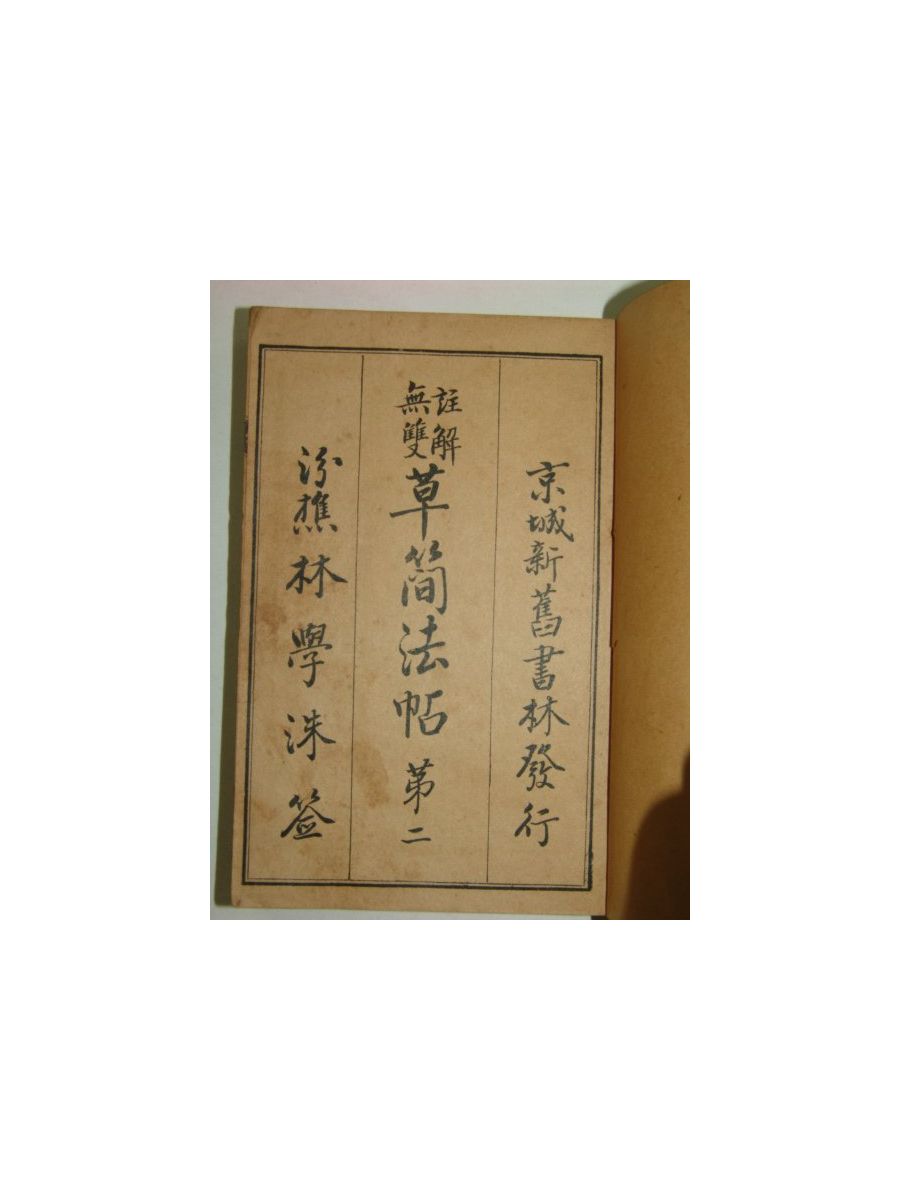 京城新舊書林發行
註解
無雙
草簡法帖 第二
汾樵林學洙签